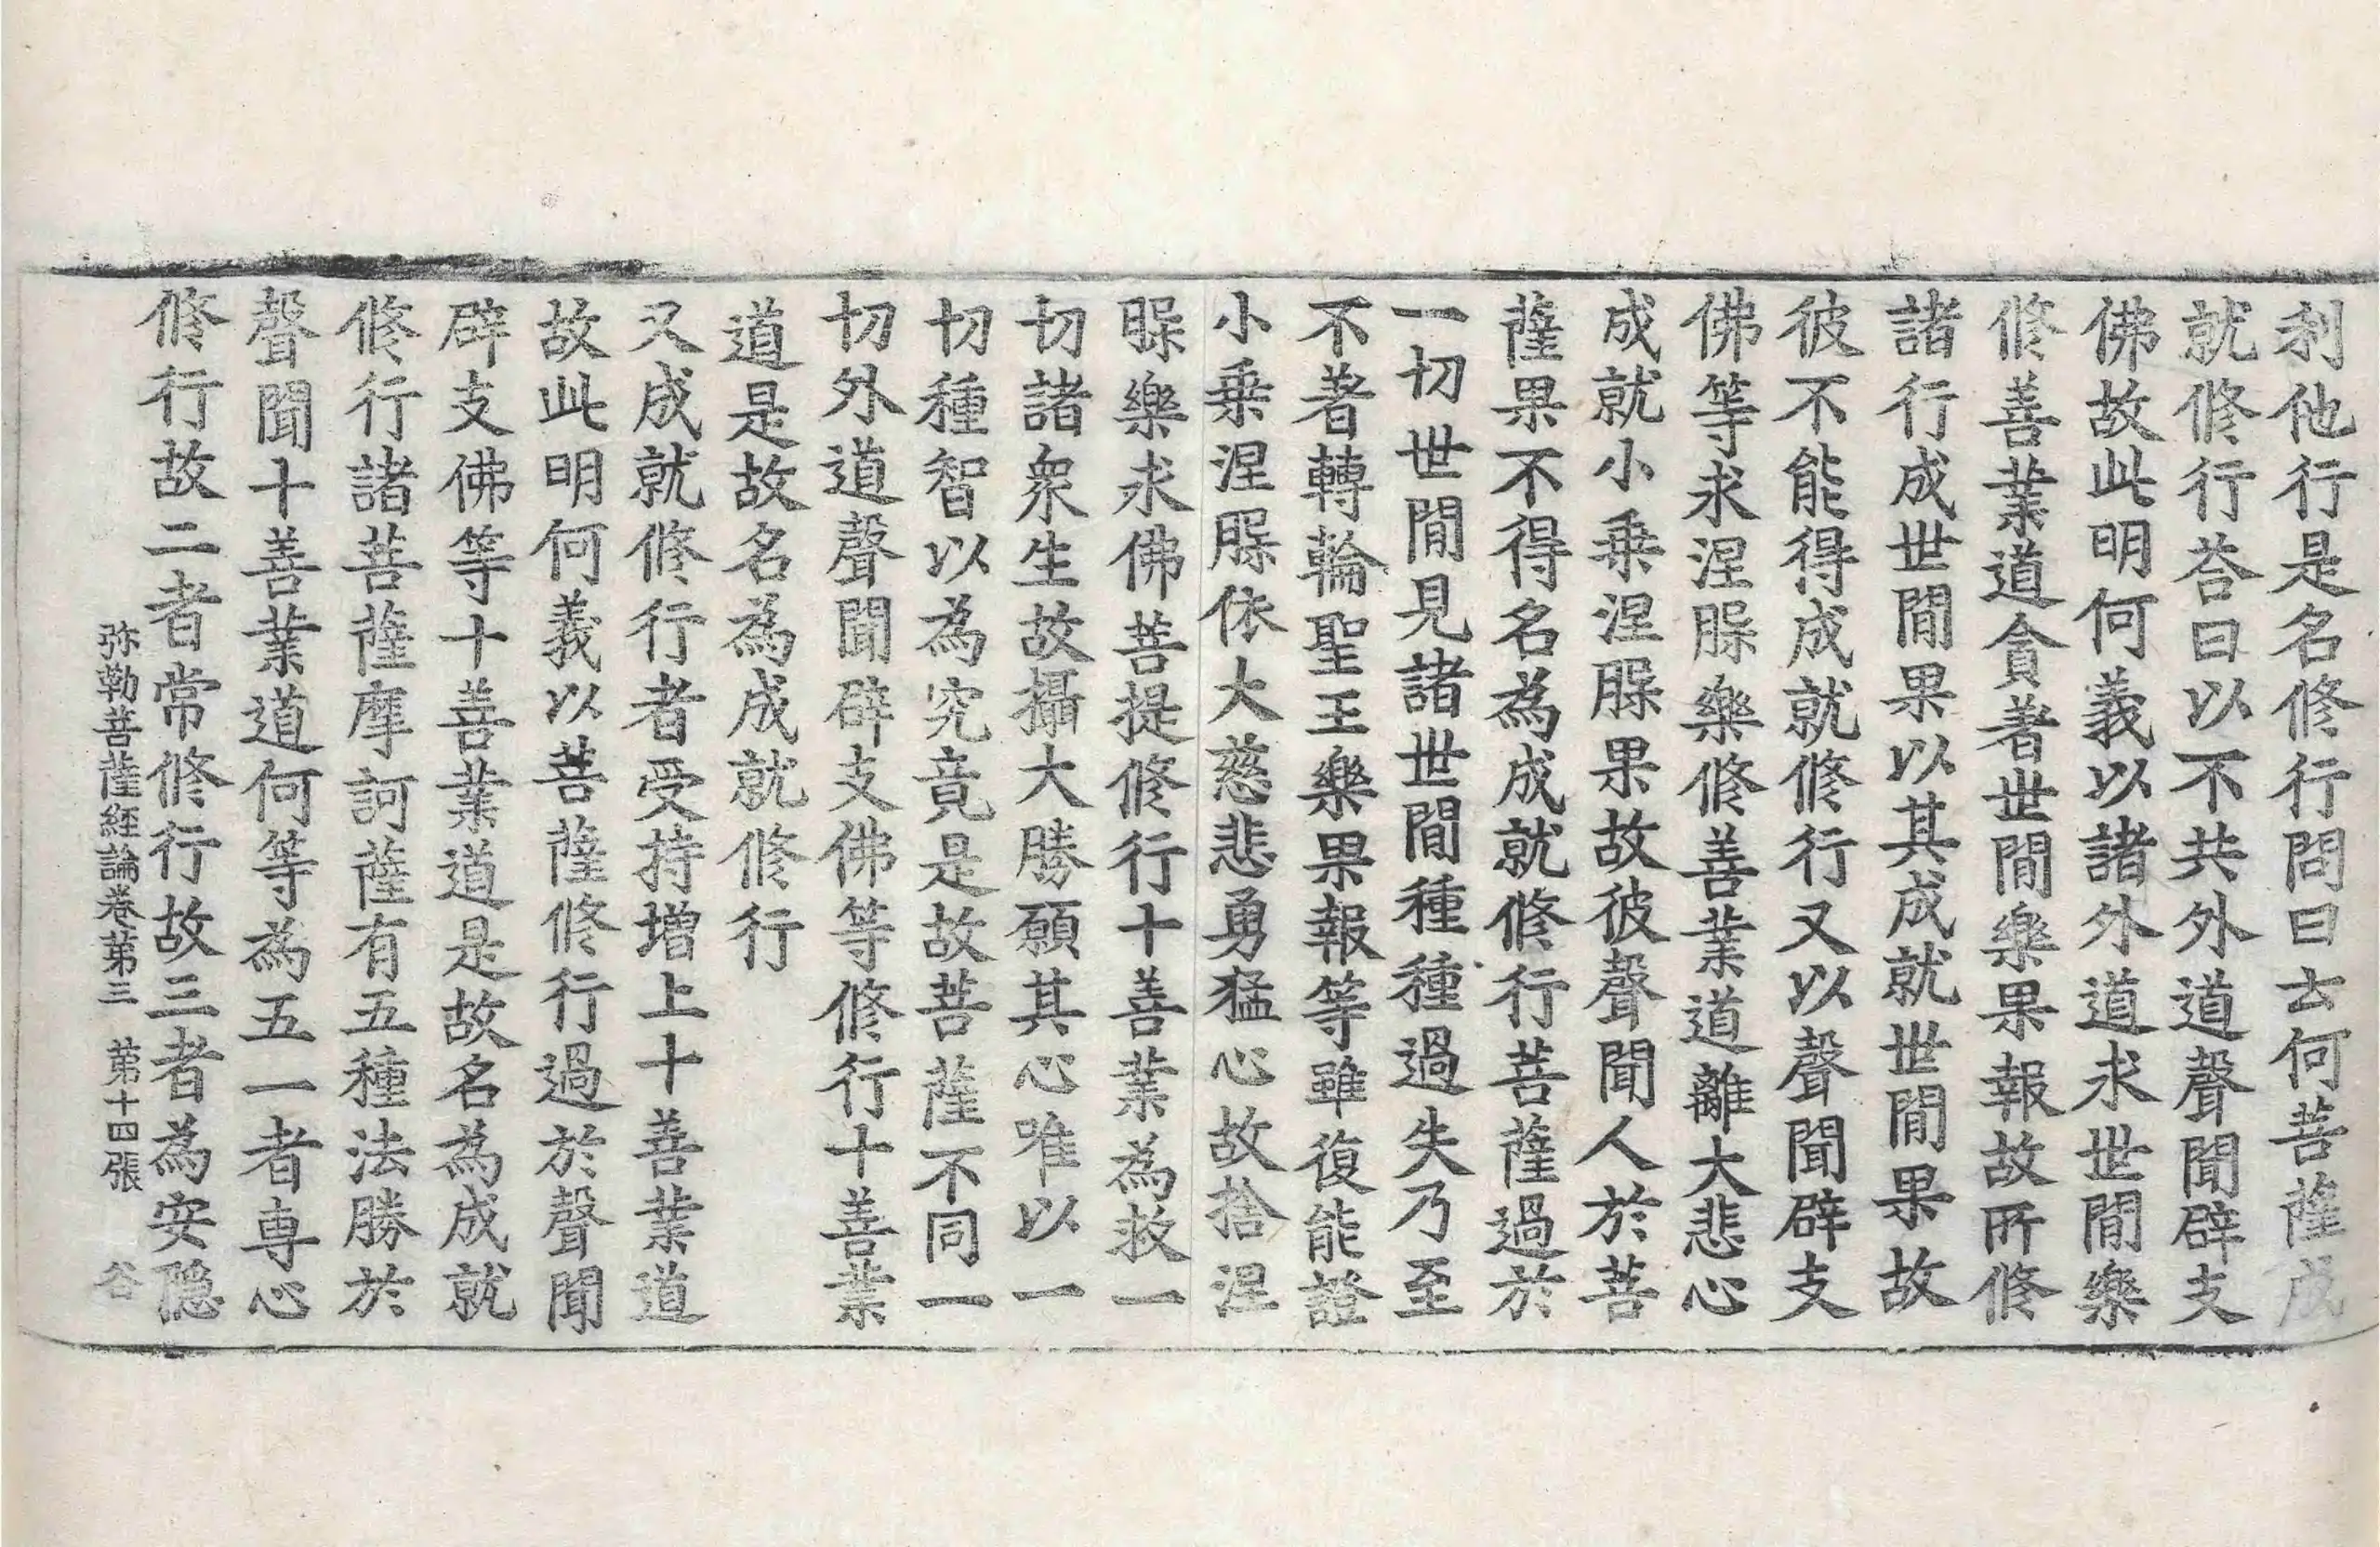 利他行是名修行問曰云何菩薩成
就修行荅曰以不共外道聲聞辟支
佛故此明何義以諸外道求世間樂
修善業道貪著世間樂果報故所修
諸行成世間果以其成就世間果故
彼不能得成就修行又以聲聞辟支
佛等求涅脲樂修善業道離大悲心
成就小乗涅脲果故彼聲聞人於菩
薩果不得名為成就修行菩薩過於
一切世間見諸世間種種過失乃至
不著轉輪聖王樂果報等雖復能證
小乗涅脲依大慈悲勇猛心故捨涅
脲樂求佛菩提修行十善業為救一
切諸衆生故攝大勝願其心唯以一
切種智以為究竟是故菩薩不同一
切外道聲聞辟支佛等修行十善業
道是故名為成就修行
又成就修行者受持增上十善業道
故此明何義以菩薩修行過於聲聞
辟支佛等十善業道是故名為成就
修行諸菩薩摩訶薩有五種法勝於
聲聞十善業道何等為五一者專心
修行故二者常修行故三者為安隱
弥勒菩薩經論卷第三 第十四張 谷